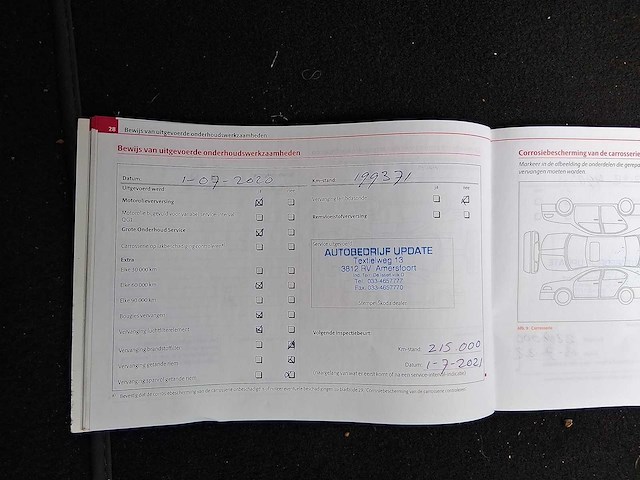 28 Bewijs van uitgevoerde onderhoudswerkzaamheden
Bewijs van uitgevoerde onderhoudswerkzaamheden
Datum: 1-07-2020
Km-stand: 199371
Uitgevoerd werd:
Motorolieverversing
Grote Onderhoud Service
Extra
Elke 30.000 km
Elke 60.000 km
Elke 90.000 km
Bougies vervangen
Vervanging luchtfilterelement
Vervanging brandstoffilter
Remvloeistofverversing
AUTOBEDRIJF UPDATE
Textielweg 13
3812 RV Amersfoort
Tel. 033-4657777
Fax 033-4657770
Stempel Škoda dealer
Volgende Inspectiebeurt:
Km-stand: 215.000
Datum: 1-7-2021
Corrosiebescherming van de carrosserie
Markeer in de afbeelding de onderdelen die
vervangen moeten worden.